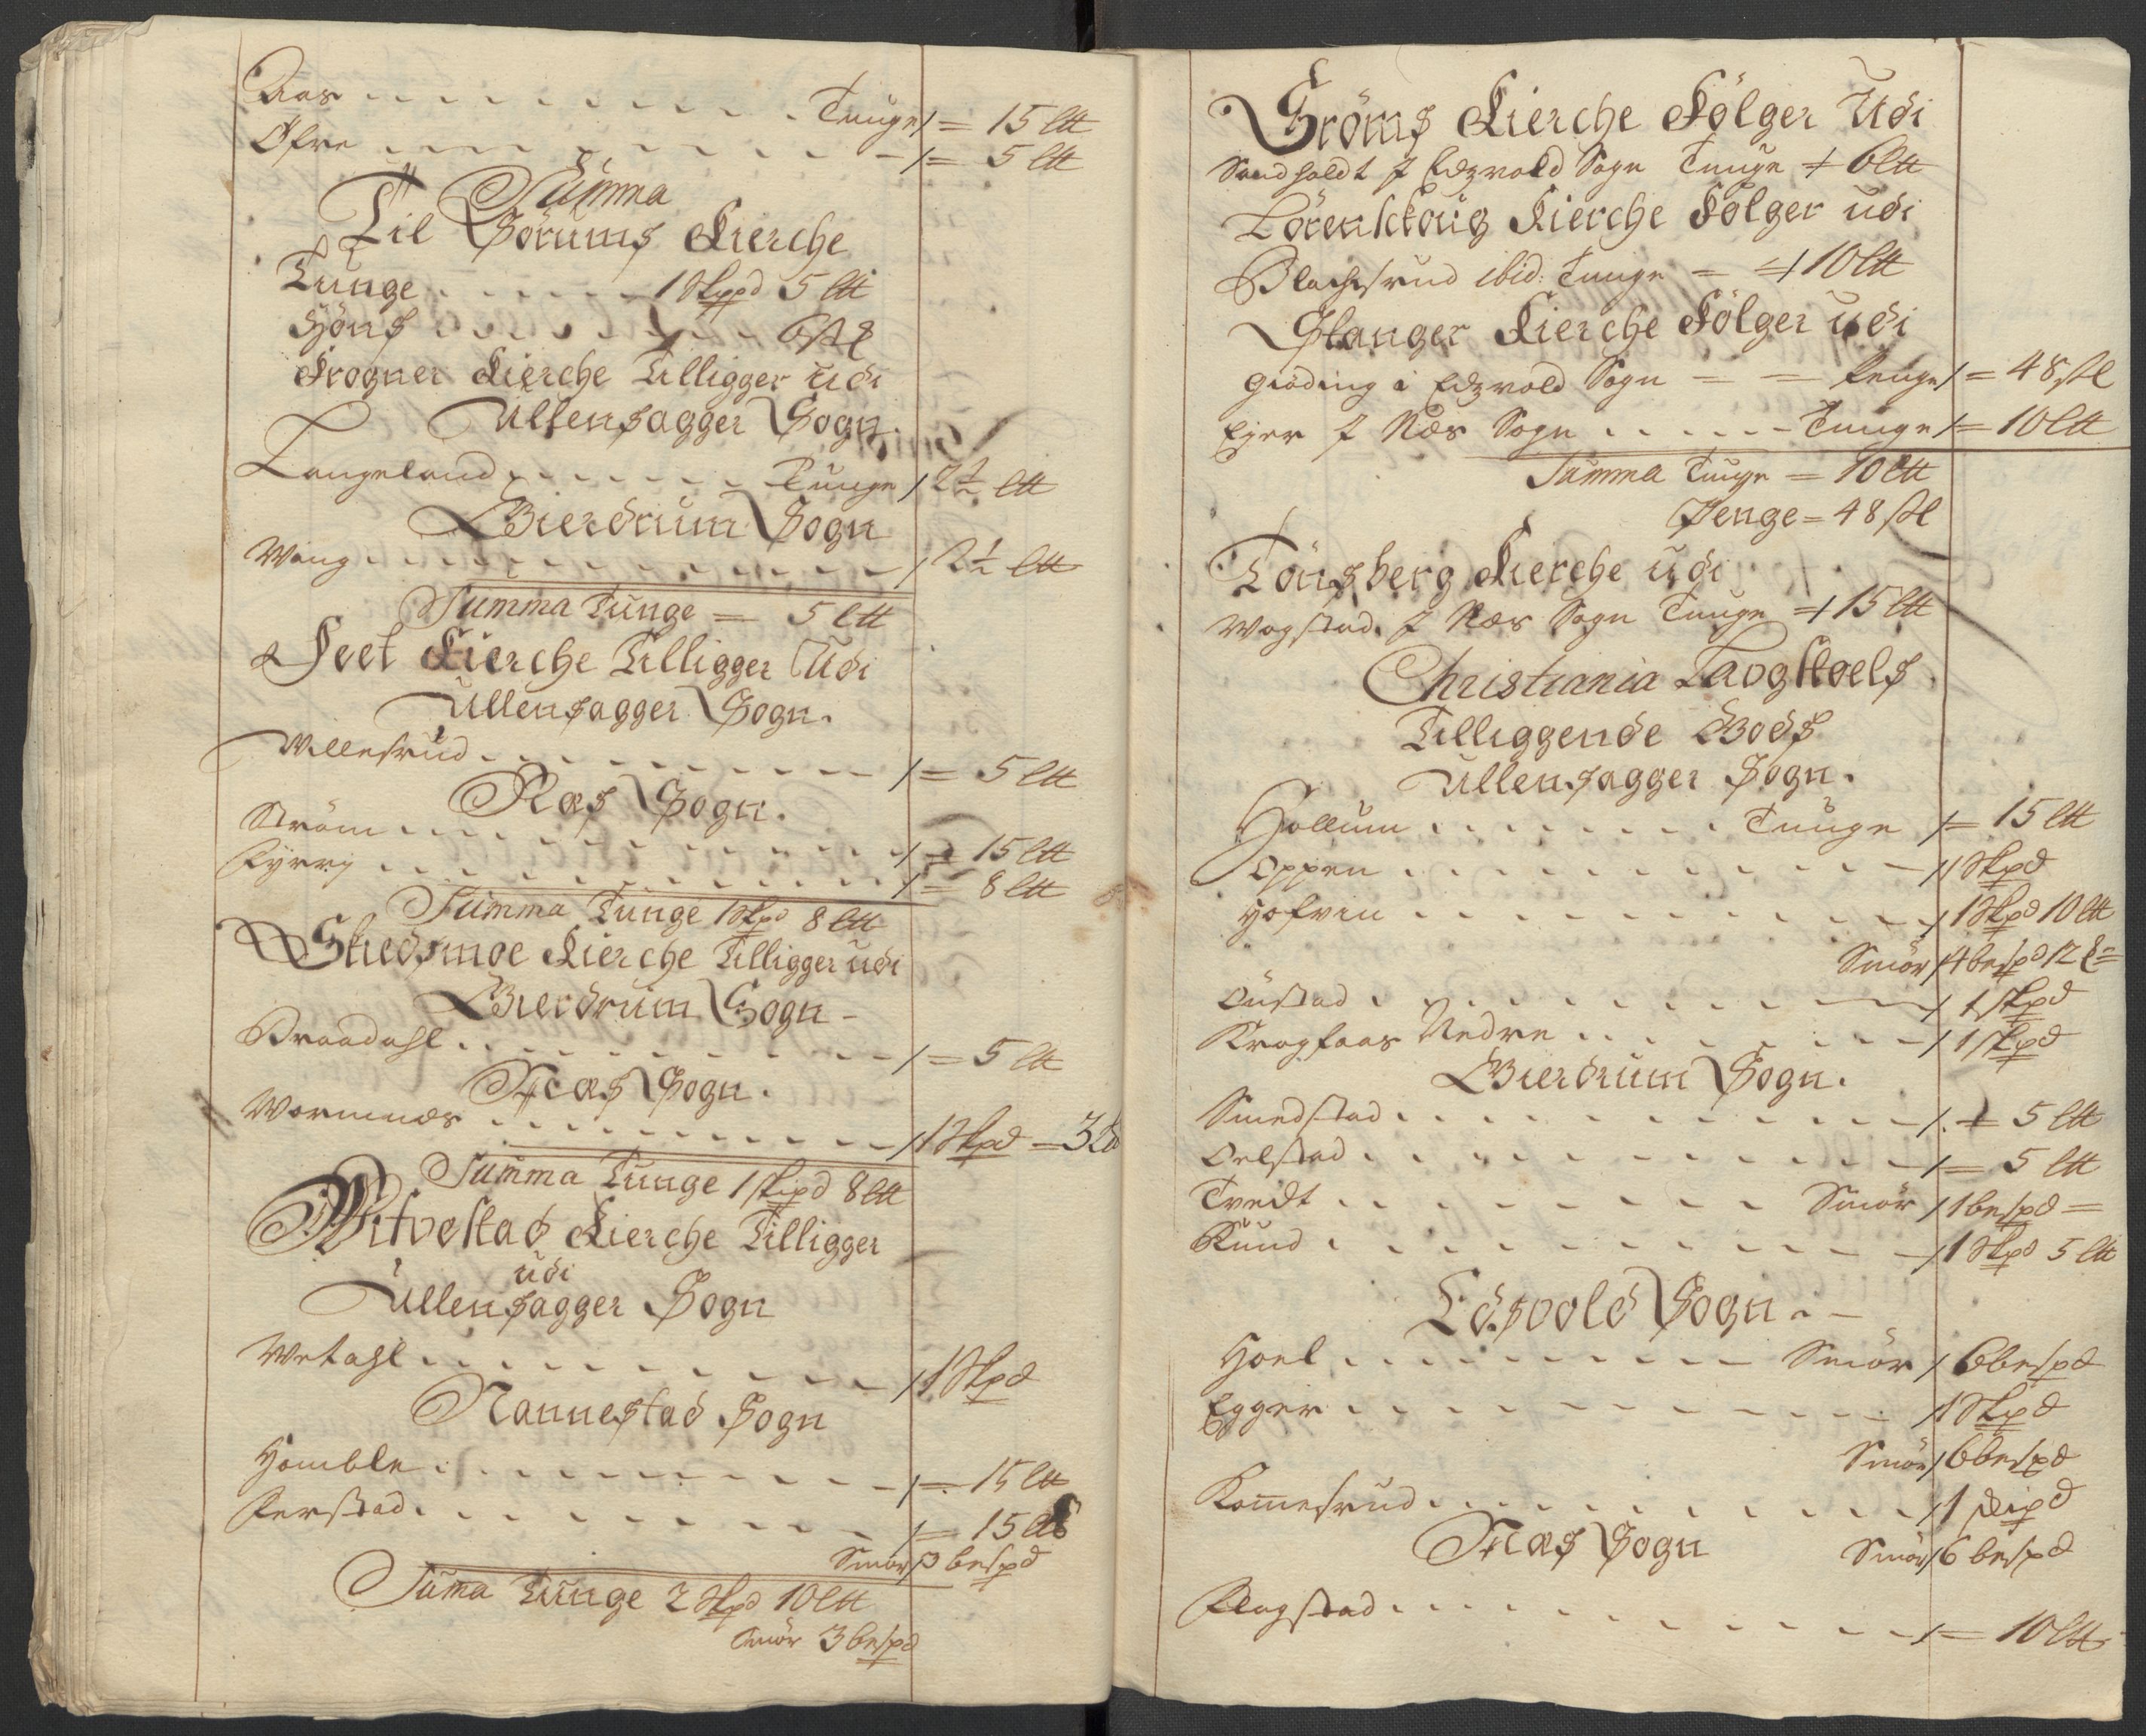 Aas . . . . . . . . . . Tunge /= 15 Ltt
Øfre . . . . . . . . . . /= 5 Ltt
Summa
Til Sørums Kierche
Tunge . . . . . . 1 Skppd 5 Ltt
Høns . . . . . . . 6 stk
Frogner Kierche Tilligger udi
Ullensagger Sogn.
Langeland . . . . . . Tunge / 2½ Ltt
Gierdrum Sogn
Wang . . . . . . . . . . / 2½ Ltt
Summa Tunge = 5 Ltt
Feet Kierche Tilligger Udi
Ullensagger Sogn.
Willesrud . . . . . . . . . /= 5 Ltt
Næs Sogn.
Strøm . . . . . . . . . . /= 15 Ltt
Fyrri . . . . . . . . . . /= 8 Ltt
Summa Tunge 1 Skpd 8 Ltt
Skedsmoe Kierche Tilligger udi
Gierdrum Sogn -
Braadahl . . . . . . . . . /= 5 Ltt
Næs Sogn.
Wormnæs . . . . . . . . . / 1 Skpd = 3 Ltt
Summa Tunge 1 Skipd 8 Ltt
Hitvestad Kierche Tilligger
udi
Ullensagger Sogn
Wetahl . . . . . . . . . / 1 Skpd
Nannestad Sogn
Homble . . . . . . . . . /= 15 Ltt
Perstad . . . . . . . . . /= 15 Ltt
Smør / 3 bespd
Suma Tunge 2 Skpd 10 Ltt
Smør 3 bespd
Strøms Kierche Følger Udi
Sandholdt I Edzvold Sogn Tunge /= 6 Ltt
Lørenschoug Kierche Følger udi
Blachsrud ibid: Tunge = /= 10 Ltt
Stanger Kierche Følger udi
Giøding i Edzvold Sogn = = Penge /= 48 stl
Ejer I Næs Sogn . . . . . . Tunge /= 10 Ltt
Summa Tunge = 10 Ltt
Penge = 48 stl
Tønsberg Kierche udi
Wogstad I Næs Sogn Tunge /= 15 Ltt
Christiania Laogstoels
Tilliggende Gods
Ullensagger Sogn.
Hollum . . . . . . . . Tunge /= 15 Ltt
Oppen . . . . . . . . . . / 1 Skpd
Hofvin . . . . . . . . . . / 1 Skpd 10 Ltt
Smør / 4 bespd 12 =
Oustad . . . . . . . . . . / 1 skpd
Krogfaas Nedre . . . . . . . / 1 skpd
Gierdrum Sogn.
Smedstad . . . . . . . . . . /= 5 Ltt
Oelstad . . . . . . . . . . /= 5 Ltt
Tvedt . . . . . . . . Smør / 1 bespd =
Kund . . . . . . . . . . / 1 Skpd 5 Ltt
Edsvold Sogn . -
Hoel . . . . . . . . . Smør / 6 bespd
Egger . . . . . . . . . . / 1 Skpd
Smør / 6 bespd
Komesrud . . . . . . . . . / 1 skipd
Næs Sogn Smør / 6 bespd
Flagstad . . . . . . . . . . /= 10 Ltt